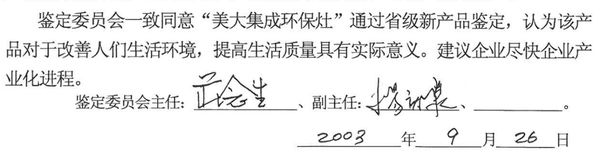 鉴定委员会一致同意“美大集成环保灶”通过省级新产品鉴定，认为该产
品对于改善人们生活环境，提高生活质量具有实际意义。建议企业尽快企业产
业化进程。
鉴定委员会主任：、副主任：、。
2003 年 9 月 26 日